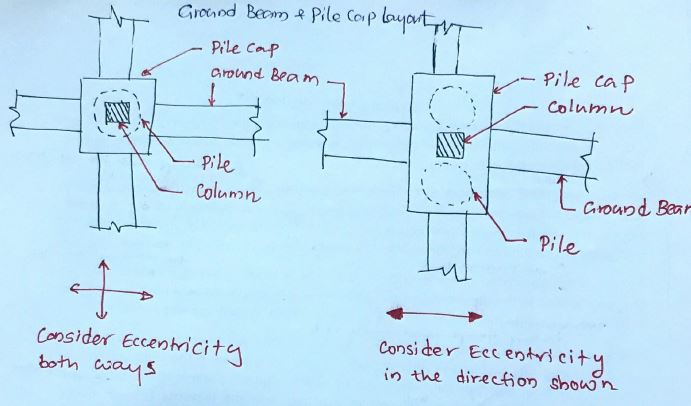 Ground Beam & Pile Cap Layout
Pile Cap
Ground Beam
Pile
Column
Consider Eccentricity
both ways
Pile Cap
Column
Ground Bear
Pile
Consider Eccentricity
in the direction shown